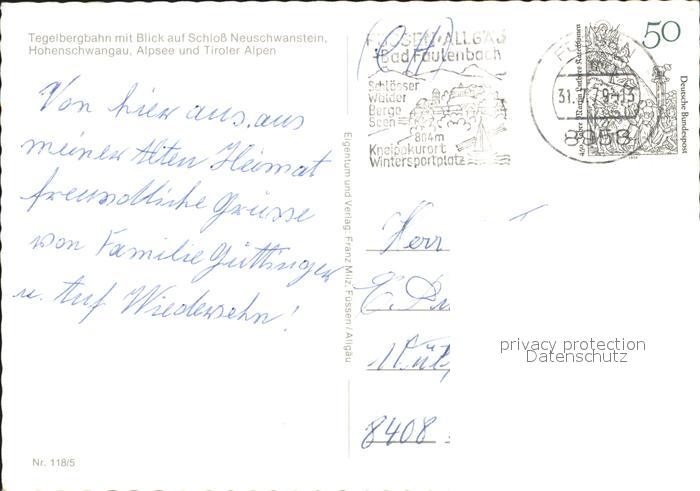 Tegelbergbahn mit Blick auf Schloß Neuschwanstein,
Hohenschwangau, Alpsee und Tiroler Alpen
Von hier aus, aus
meiner Alten Heimat
freundliche Grüsse
von Familie Güttinger
u. Auf Wiedersehn!
Nr. 118/5
Eigentum und Verlag: Franz Milz, Füssen/Allgäu
(CH)
FÜSSEN·ALLGÄU
Bad Faulenbach
Schlösser
Wälder
Berge
Seen
804m
Kneippkurort
Wintersportplatz
FÜSSEN
8958
50
Deutsche Bundespost
Herr
8408
privacy protection
Datenschutz